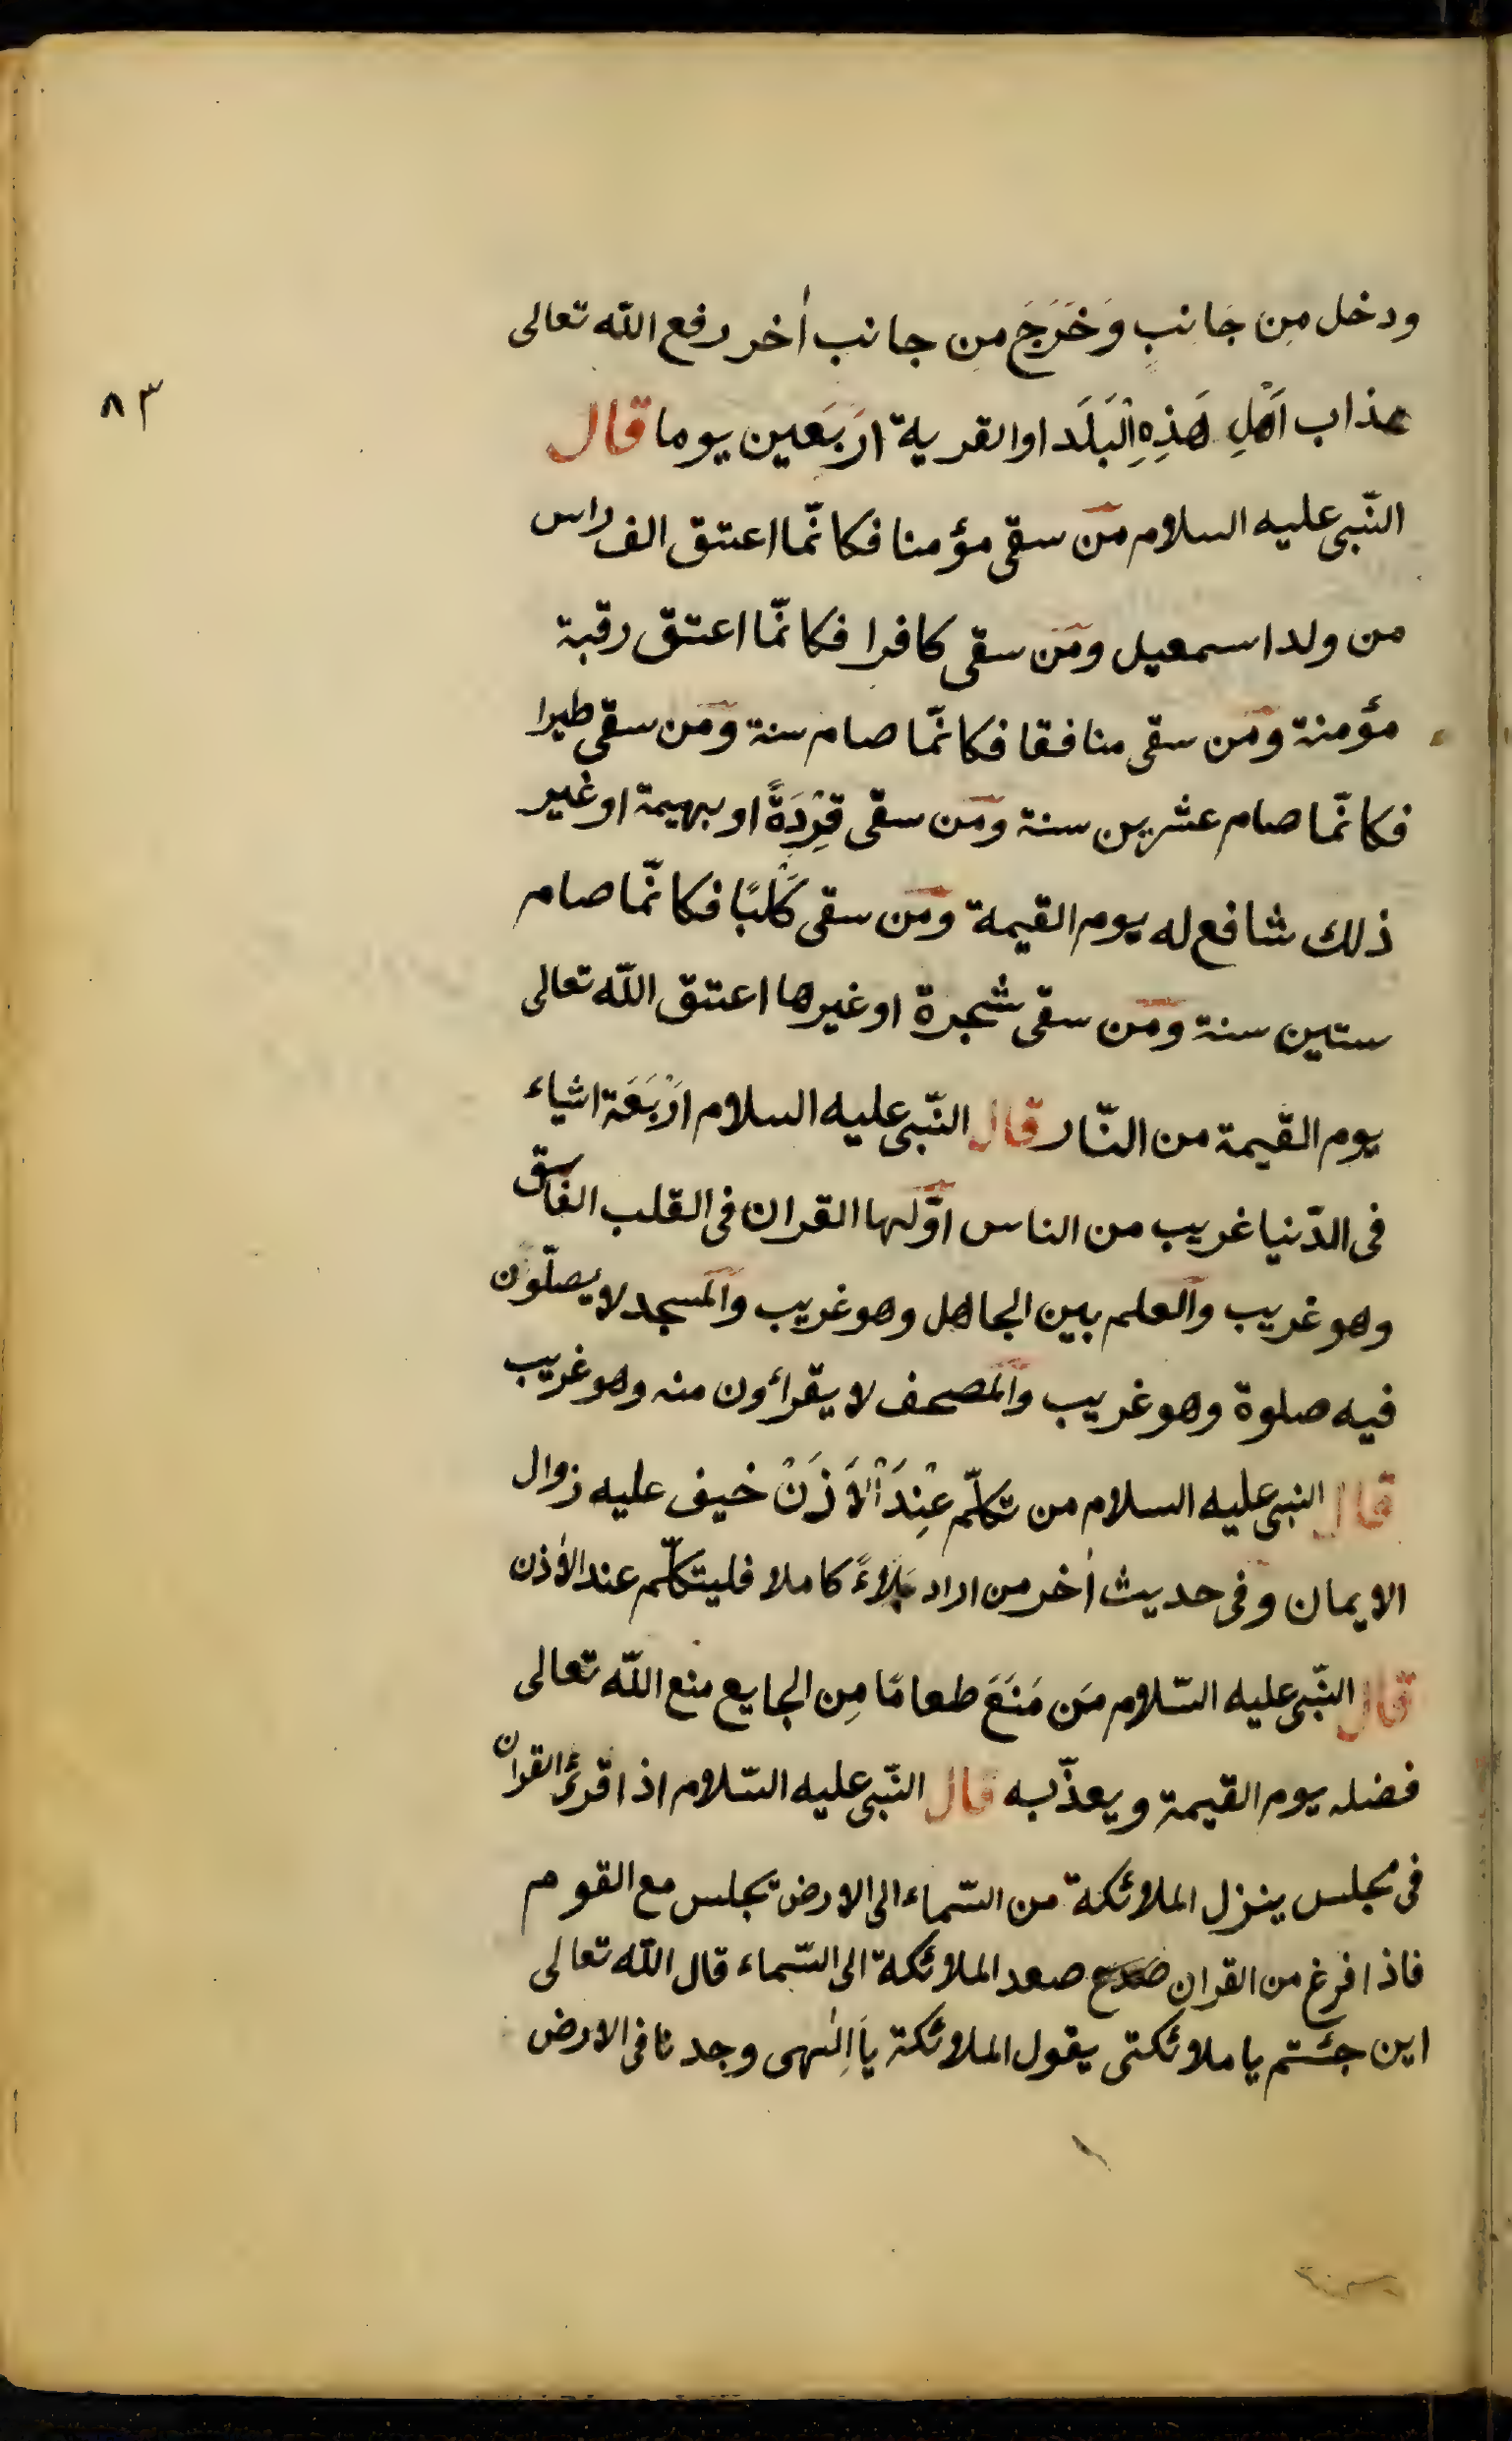 ودخل مِن جَانبٍ وَخَرَجَ من جانب اٰخر رفع الله تعالى
عذاب اَهْلِ هَذِهِ الْبَلَد او القرية اَرْبَعين يوما قال
٨٣
النّبى عليه السلام مَن سقى مؤمنا فكانّما اعتق الف راس
من ولد اسمعيل ومَن سقى كافرا فكانّما اعتق رقبة
مؤمنة ومَن سقى منافقا فكانّما صام سنة ومَن سقى طيرا
فكانّما صام عشرين سنة ومَن سقى قِرْدَةً او بهيمة او غير
ذلك شافع له يوم القيمة ومَن سقى كَلْبًا فكانّما صام
ستين سنة ومَن سقى شجرة او غيرها اعتق الله تعالى
يوم القيمة من النّار قال النّبى عليه السلام اَرْبَعَة اشياء
فى الدّنيا غريب من الناس اوّلها القران فى القلب الفاسق
وهو غريب والعلم بين الجاهل وهو غريب والمسجد لا يصلّون
فيه صلوة وهو غريب والمصحف لا يقراؤن منه وهو غريب
قال النبى عليه السلام من تكلّم عِنْدَ الْاَذَنْ خيف عليه زوال
الايمان وفى حديث اٰخر من اراد بَلاءً كاملا فليتكلّم عند الاذن
قال النّبى عليه السّلام مَن مَنَعَ طعامًا مِن الجايع منع الله تعالى
فضله يوم القيمة ويعذّبه قال النّبى عليه السّلام اذا قرئ القران
فى مجلس ينزل الملائكة من السّماء الى الارض يجلس مع القوم
فاذا فرغ من القران صعد الملائكة الى السّماء قال الله تعالى
اين جئتم يا ملائكتى يقول الملائكة يا اِلٰهى وجدنا فى الارض